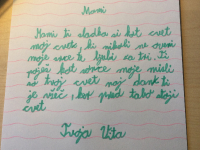 Mami
Mami ti sladka si kot cvet
moj cvetek, ki nikoli ne oveni
moje srce te ljubi za tri, ti
poješ kot sonce moje misli
so tvoj cvet naj dank ti
je všeč, ker pred tabo stoji
cvet
Tvoja Vita